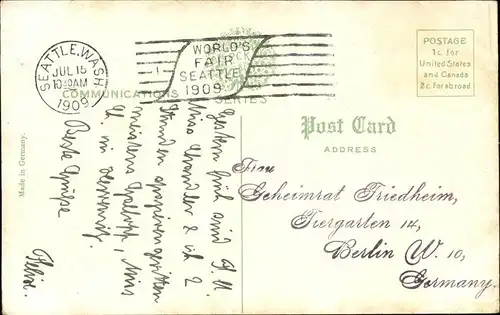 SEATTLE, WASH.
JUL 15
10-30AM
1909
WORLD'S
FAIR
SEATTLE
1909
COMMUNICATIONS SERIES
POSTAGE
1c. for
United States
and Canada
2c. for abroad
Post Card
ADDRESS
Made in Germany.
Gestern früh sind
2 ich 2
Stunden spazierengeritten
meistens Galopp,
Beste Grüße
Frau
Geheimrat Friedheim,
Tiergarten 14,
Berlin W. 10,
Germany.